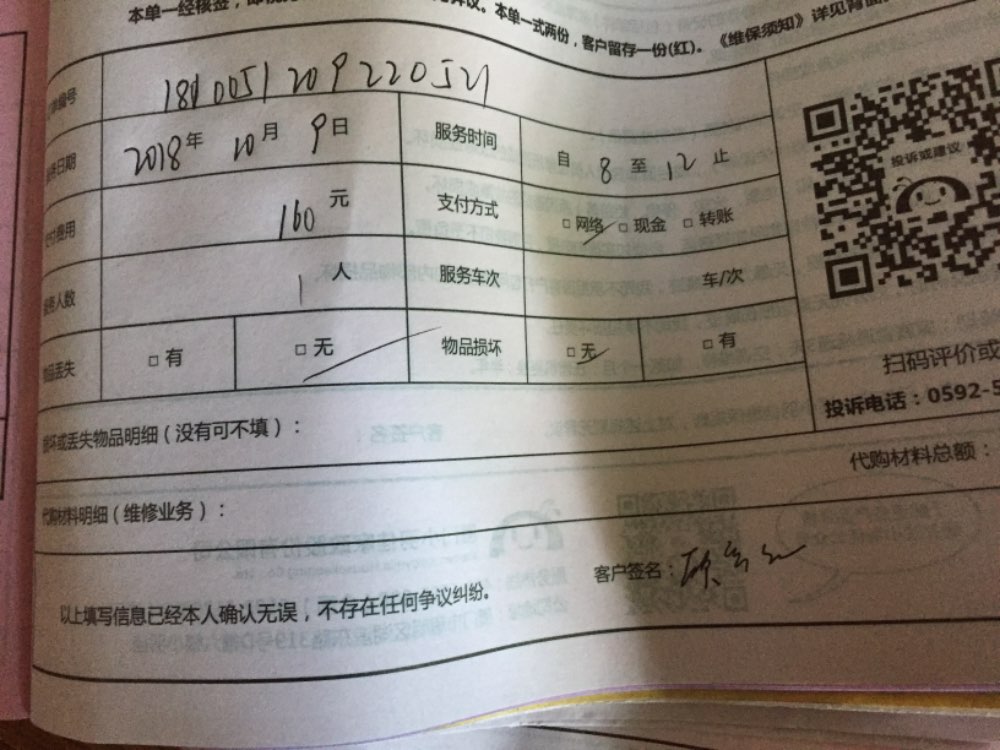 本单一经核签，即视
异议。本单一式两份，客户留存一份(红)。《维保须知》详见背面
编号
2018年 10月 9日
日期
服务时间
自 8 至 12 止
费用
160 元
支付方式
□ 网络 □ 现金 □ 转账
人数
1 人
服务车次
车/次
物品丢失
□ 有
□ 无
物品损坏
□ 无
□ 有
投诉或建议
扫码评价或
投诉电话：0592-5
坏或丢失物品明细（没有可不填）：
代购材料总额：
代购材料明细（维修业务）：
客户签名：
以上填写信息已经本人确认无误，不存在任何争议纠纷。